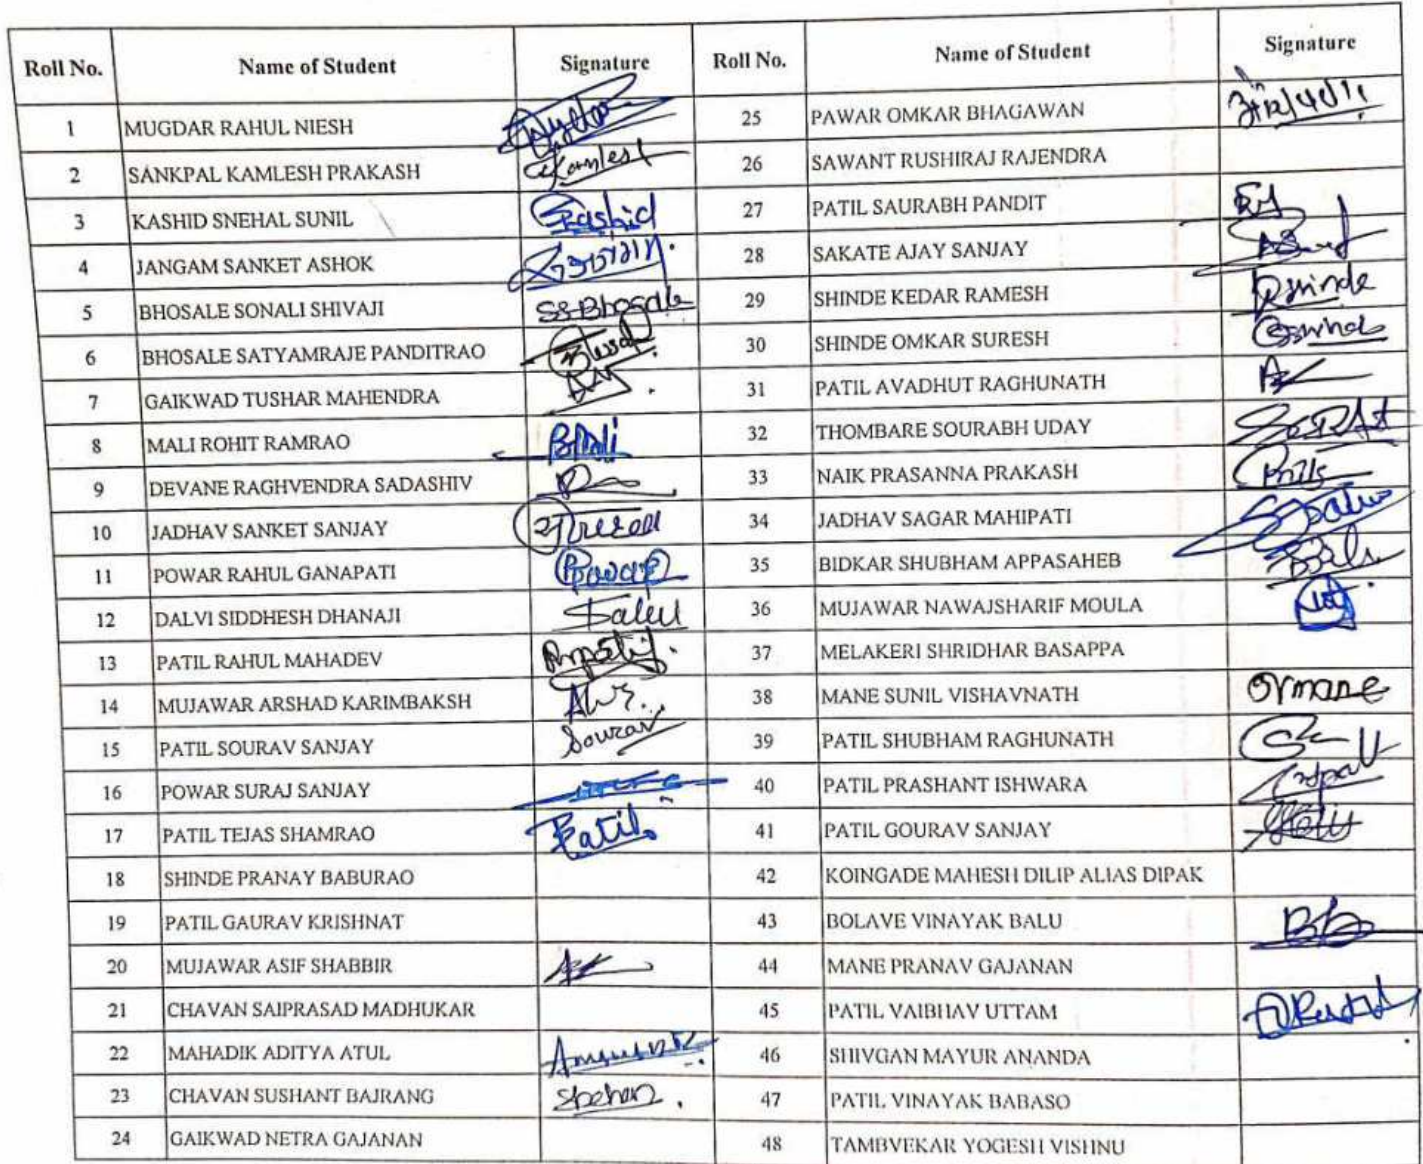 Roll No. Name of Student Signature Roll No. Name of Student Signature
1 MUGDAR RAHUL NIESH 25 PAWAR OMKAR BHAGAWAN
2 SANKPAL KAMLESH PRAKASH Kamlesh 26 SAWANT RUSHIRAJ RAJENDRA
3 KASHID SNEHAL SUNIL Kashid 27 PATIL SAURABH PANDIT
4 JANGAM SANKET ASHOK 28 SAKATE AJAY SANJAY
5 BHOSALE SONALI SHIVAJI SSBhosale 29 SHINDE KEDAR RAMESH Shinde
6 BHOSALE SATYAMRAJE PANDITRAO 30 SHINDE OMKAR SURESH
7 GAIKWAD TUSHAR MAHENDRA 31 PATIL AVADHUT RAGHUNATH
8 MALI ROHIT RAMRAO 32 THOMBARE SOURABH UDAY
9 DEVANE RAGHVENDRA SADASHIV 33 NAIK PRASANNA PRAKASH
10 JADHAV SANKET SANJAY 34 JADHAV SAGAR MAHIPATI
11 POWAR RAHUL GANAPATI 35 BIDKAR SHUBHAM APPASAHEB
12 DALVI SIDDHESH DHANAJI 36 MUJAWAR NAWAJSHARIF MOULA
13 PATIL RAHUL MAHADEV 37 MELAKERI SHRIDHAR BASAPPA
14 MUJAWAR ARSHAD KARIMBAKSH 38 MANE SUNIL VISHAVNATH
15 PATIL SOURAV SANJAY Sourav 39 PATIL SHUBHAM RAGHUNATH
16 POWAR SURAJ SANJAY 40 PATIL PRASHANT ISHWARA
17 PATIL TEJAS SHAMRAO Patil 41 PATIL GOURAV SANJAY
18 SHINDE PRANAY BABURAO 42 KOINGADE MAHESH DILIP ALIAS DIPAK
19 PATIL GAURAV KRISHNAT 43 BOLAVE VINAYAK BALU
20 MUJAWAR ASIF SHABBIR 44 MANE PRANAV GAJANAN
21 CHAVAN SAIPRASAD MADHUKAR 45 PATIL VAIBHAV UTTAM
22 MAHADIK ADITYA ATUL 46 SHIVGAN MAYUR ANANDA
23 CHAVAN SUSHANT BAJRANG 47 PATIL VINAYAK BABASO
24 GAIKWAD NETRA GAJANAN 48 TAMBVEKAR YOGESH VISHNU